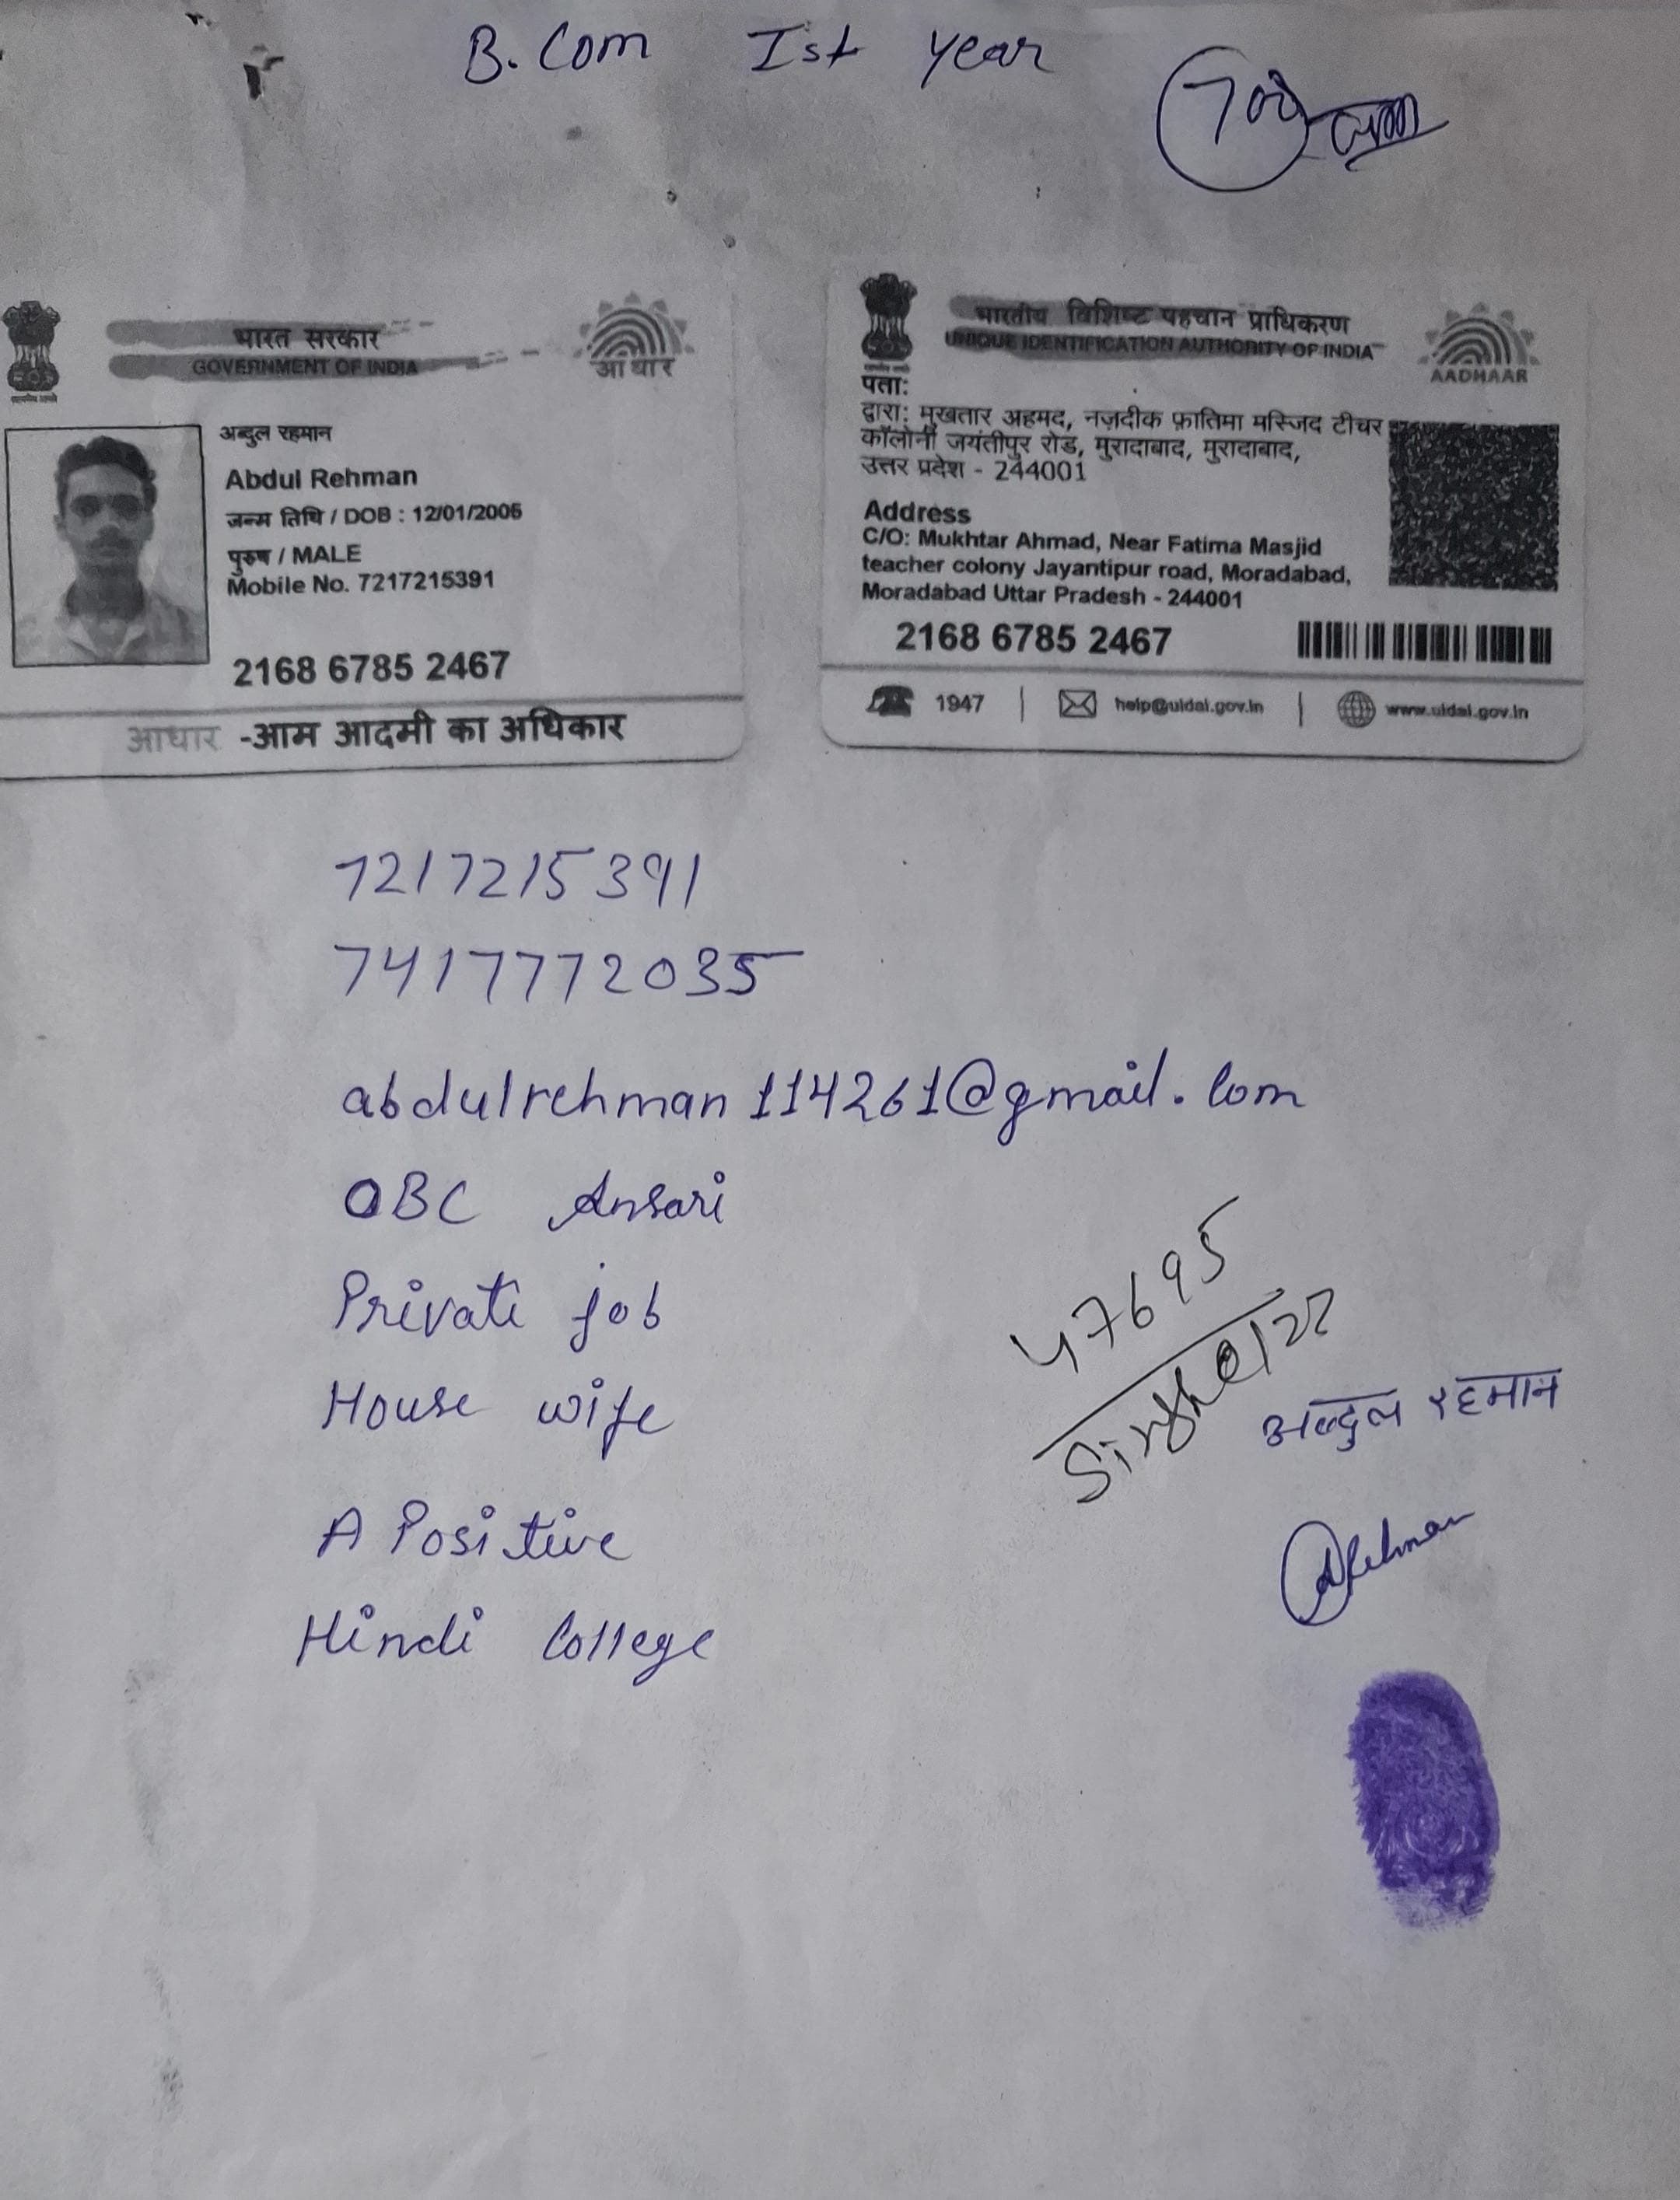 B.Com Ist year
700
भारत सरकार
GOVERNMENT OF INDIA
आधार
अब्दुल रहमान
Abdul Rehman
जन्म तिथि / DOB : 12/01/2005
पुरुष / MALE
Mobile No. 7217215391
2168 6785 2467
आधार -आम आदमी का अधिकार
भारतीय विशिष्ट पहचान प्राधिकरण
UNIQUE IDENTIFICATION AUTHORITY OF INDIA
AADHAAR
पता:
द्वारा: मुखतार अहमद, नज़दीक फ़ातिमा मस्जिद टीचर
कॉलोनी जयंतीपुर रोड, मुरादाबाद, मुरादाबाद,
उत्तर प्रदेश - 244001
Address
C/O: Mukhtar Ahmad, Near Fatima Masjid
teacher colony Jayantipur road, Moradabad,
Moradabad Uttar Pradesh - 244001
2168 6785 2467
1947 | help@uidai.gov.in | www.uidai.gov.in
7217215391
7417772035
abdulrehman114261@gmail.com
OBC Ansari
Private job
House wife
A Positive
Hindi College
47695
अब्दुल रहमान
ARehman